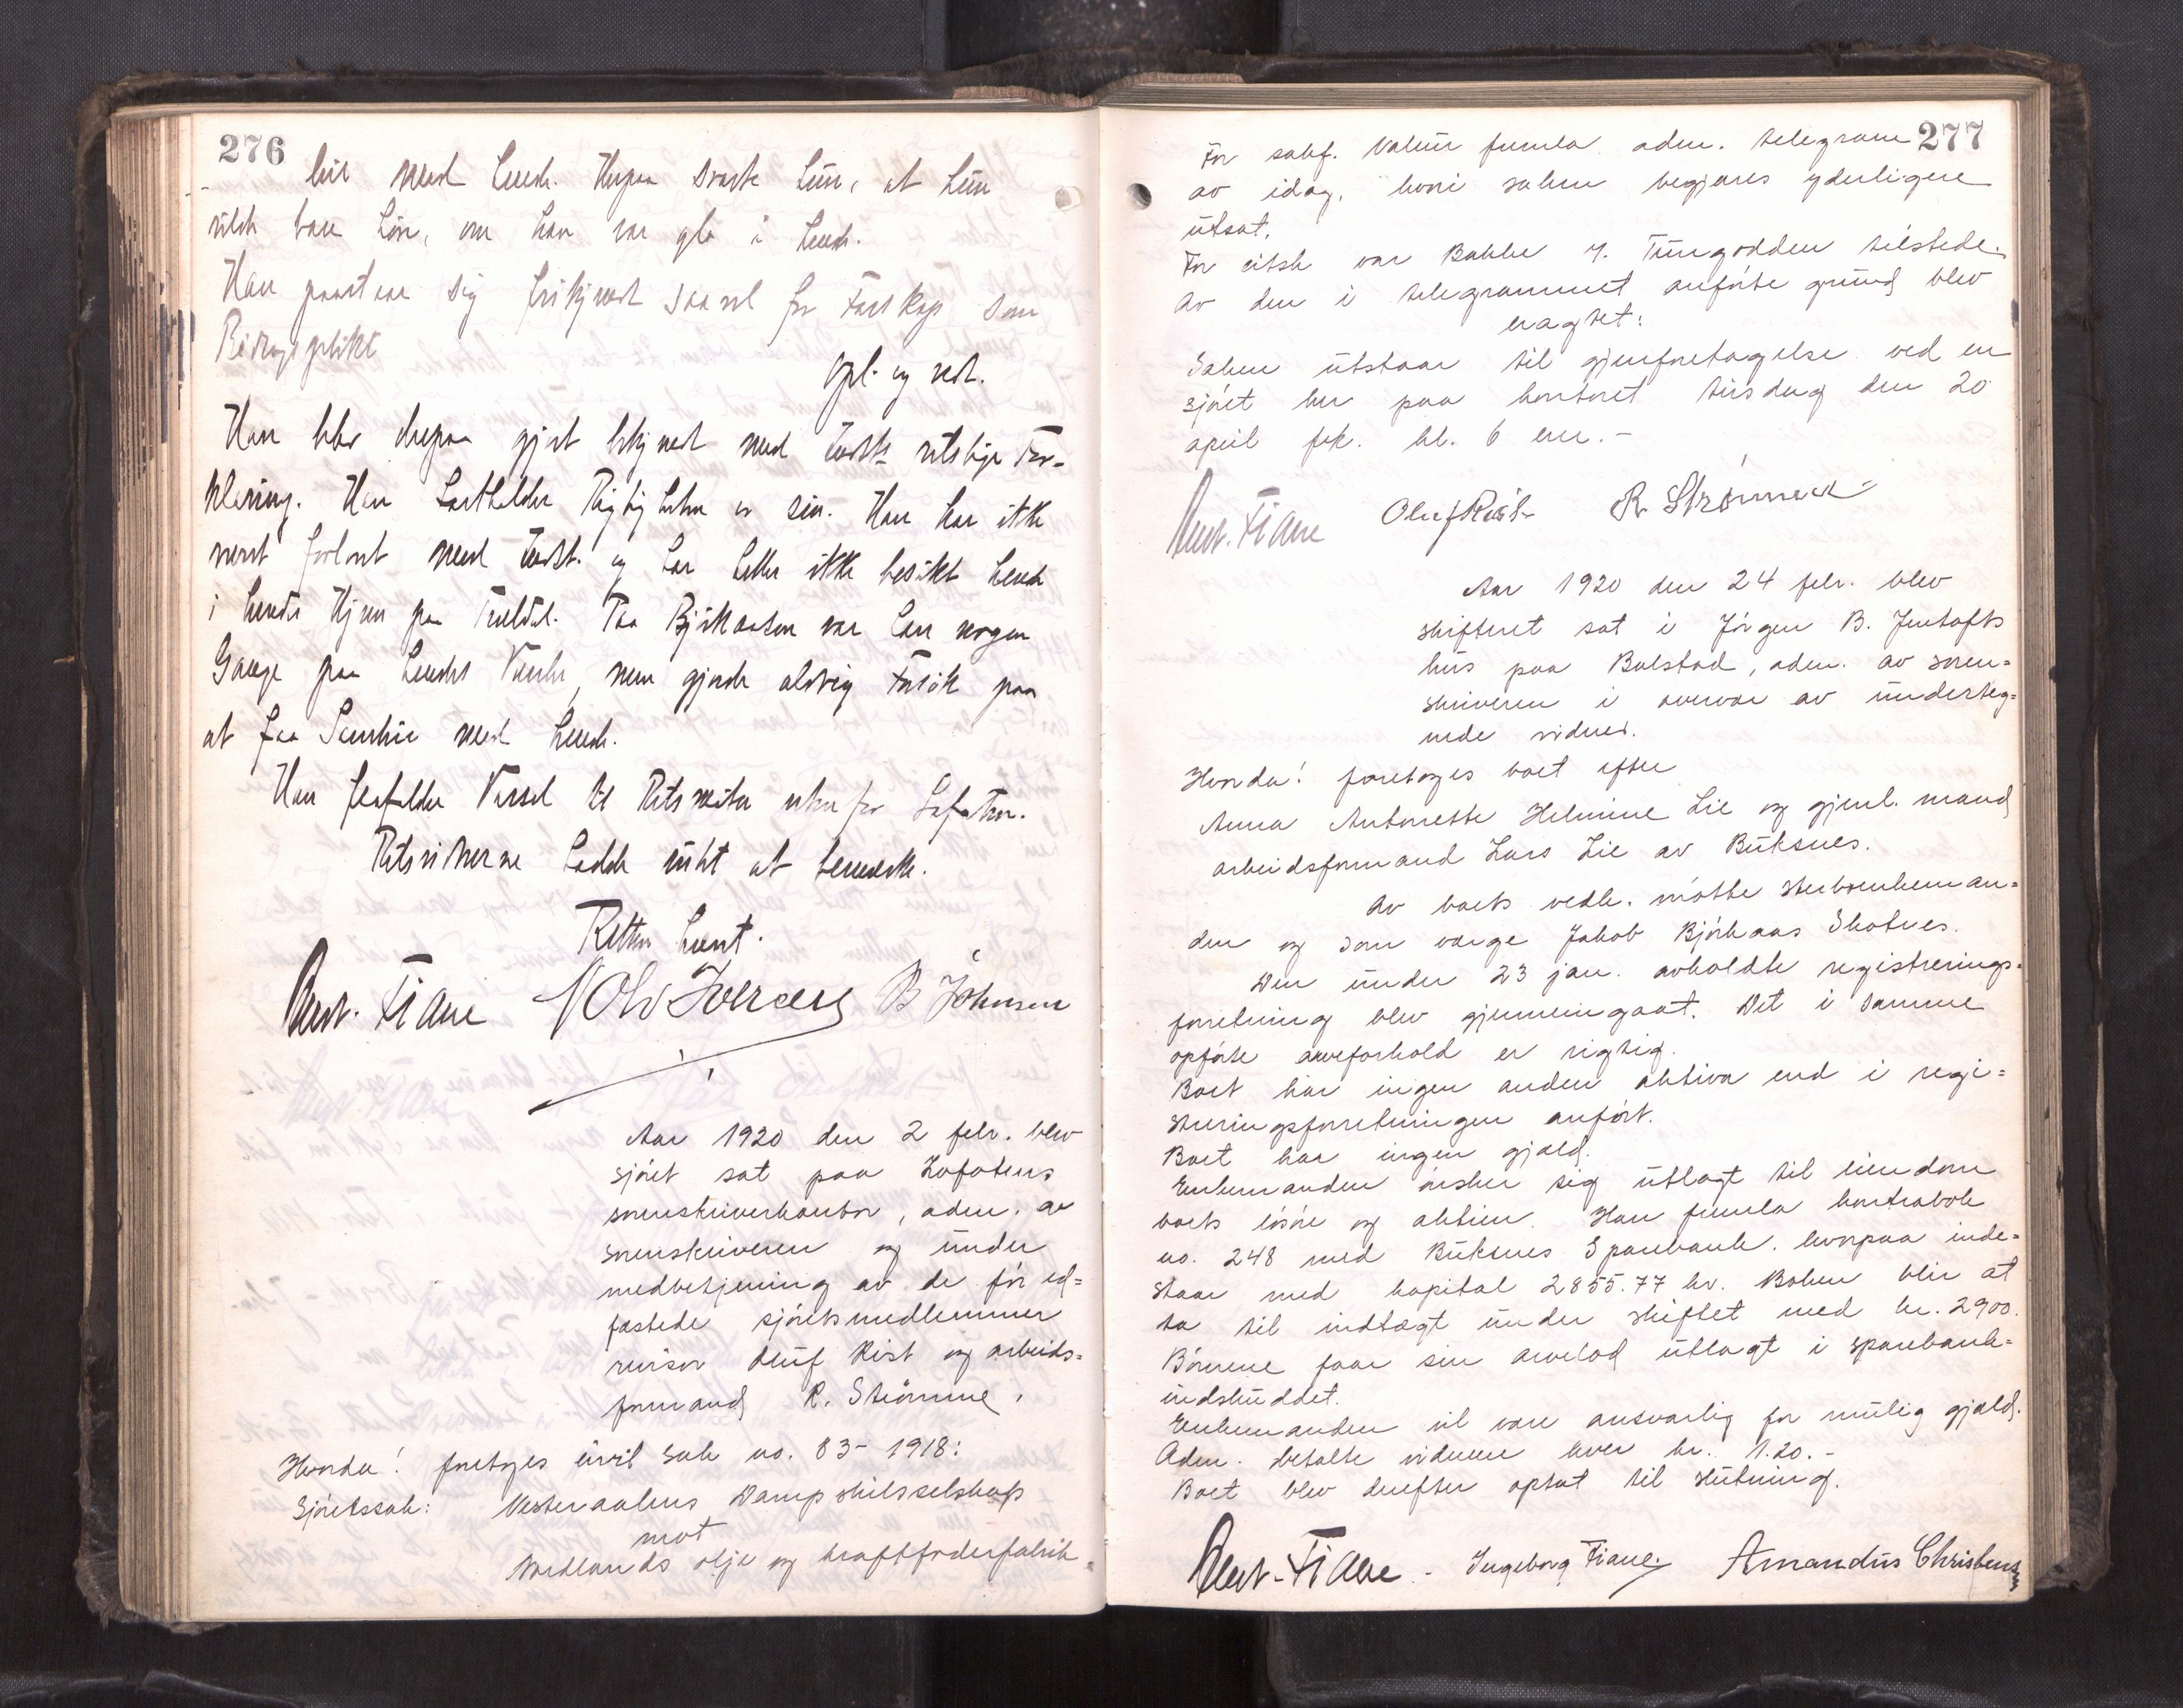 276
hir med hende. Herpaa svarte hun, at hun
vilde bare høre, om han var gla i hende.
Han paastaar sig frikjendt saavel for Farskap som
Bidragsplikt
Opl. og vedt.
Han blev derpaa gjort bekjendt med Vedk. retslige For-
klaring. Han fastholder Rigtigheten av sin. Han har ikke
været forlovet med Vedk. og har heller ikke besøkt hende
i hendes Hjem paa Bjørkaasen var han nogen
Gange paa hendes men gjorde aldrig Forsøk paa
at faa Samleie med hende.
Han frafalder Varsel til Retsmøter utenfor Lofoten.
Retsvidnerne hadde intet at bemerke.
Retten hævet.
Fiane Olv Iversen B Johnsen
Aar 1920 den 2 febr. blev
sjøret sat paa Lofotens
sorenskriverkontor, adm. av
sorenskriveren og under
medbetjening av de før ed-
fæstede sjøretsmedlemmer
revisor Oluf Rist og arbeids-
formand R. Strømme.
Hvorda! foretoges civil sak no. 83-1918:
Sjøretssak: Vesteraalens Dampskibsselskap
mot
Nordlands olje og kraftfoderfabrik.
277
For sakf. Valeur fremla adm. telegram
av idag, hvori saken begjæres yderligere
utsat.
For citsk var Bakke v. Tungodden tilstede.
Av den i telegrammet anførte grund blev
eragtet:
Saken utstaar til gjenforetagelse ved en
sjøret her paa kontoret tirsdag den 20
april fck. kl. 6 em. -
Fiane Oluf Rist R. Strømme
Aar 1920 den 24 febr. blev
skifteret sat i Jørgen B. Jentofts
hus paa Balstad, adm. av soren-
skriveren i overvær av underteg-
nede vidner.
Hvorda! foretoges boet efter
Anna Antonette Helmine Lie og gjenl. mand
arbeidsformand Lars Lie av Buksnes.
Av boets vedk. møtte sterboenkeman-
den og som værge Jakob Bjørkaas Skotnes.
Den under 23 jan. avholdte registrerings-
forretning blev gjennemgaat. Det i samme
opførte arveforhold er rigtig.
Boet har ingen anden aktiva end i regi-
streringsforretningen anført.
Boet har ingen gjæld.
Enkemanden ønsker sig utlagt til eiendom
boets løsøre og aktien. Han fremla kontrabok
no. 248 med Buksnes Sparebank, hvorpaa inde-
staar med kapital 2855.77 kr. Boken blir at
ta til indtægt under skiftet med kr. 2900.
Børnene faar sin arvelod utlagt i sparebank-
indskuddet.
Enkemanden vil være ansvarlig for mulig gjæld.
Adm. betalte vidnene hver kr. 1.20. -
Boet blev derefter optat til slutning.
Fiane - Ingeborg Fiane. Amandus Christensen